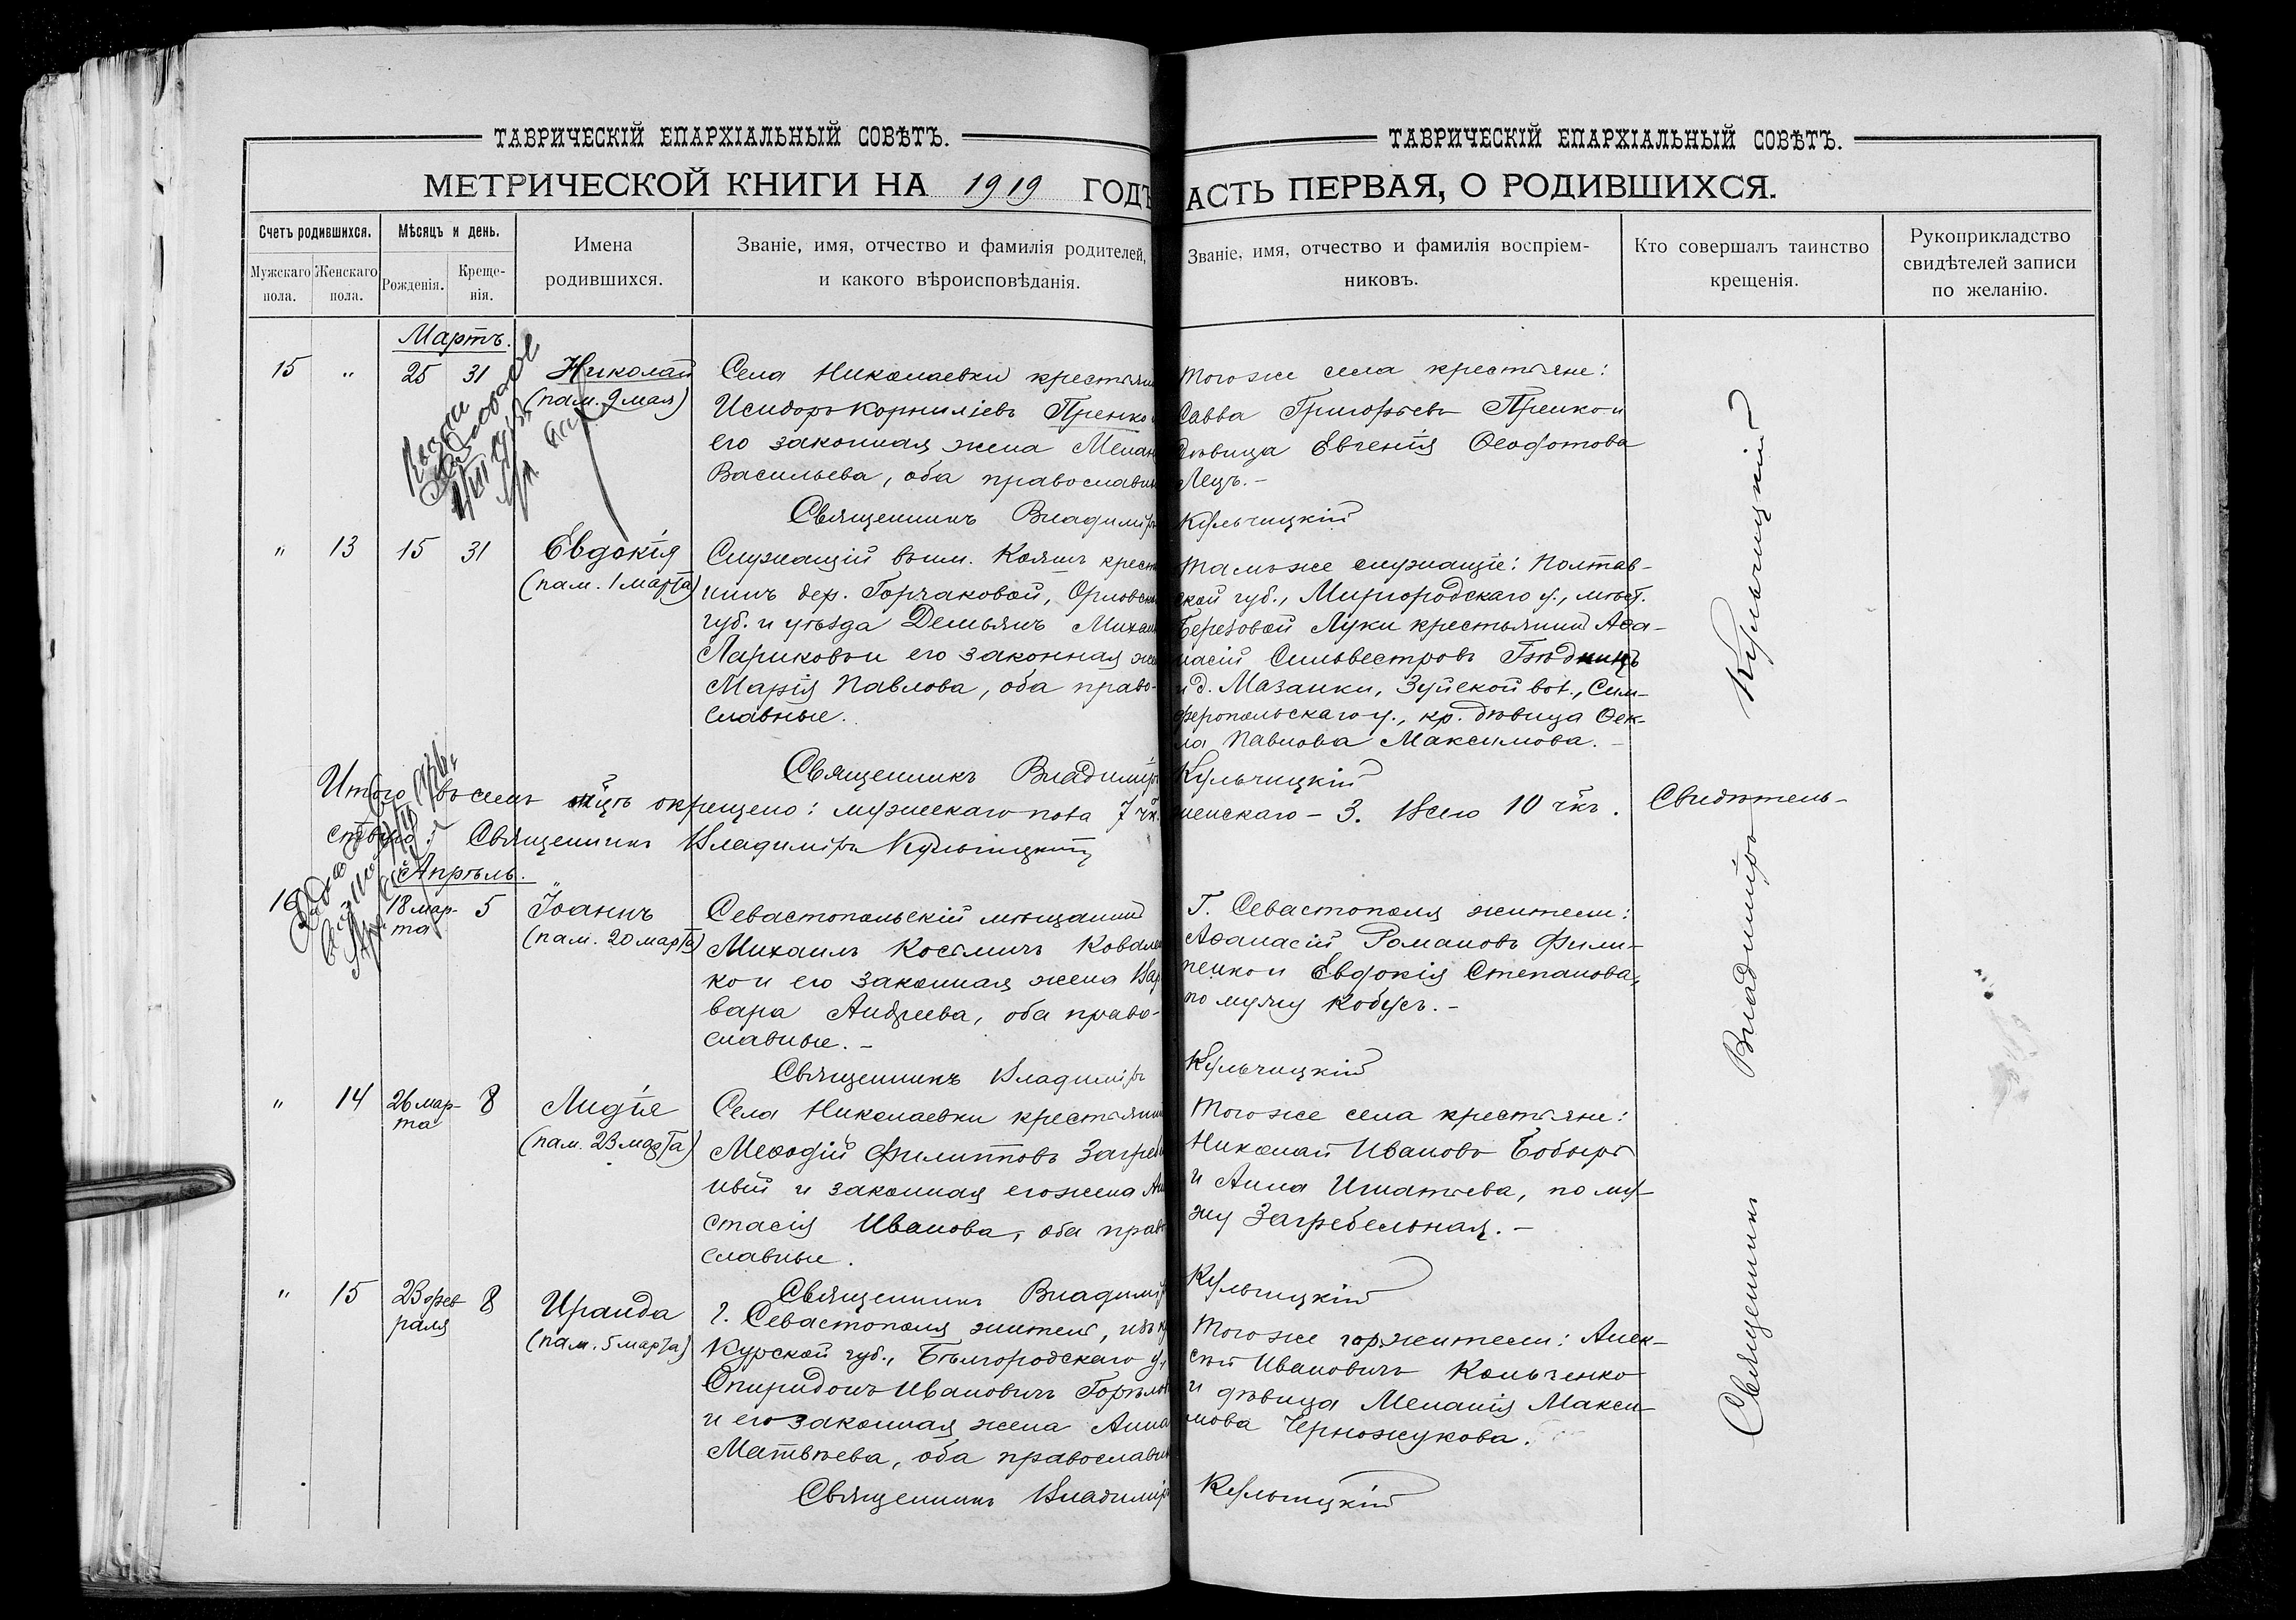 ТАВРИЧЕСКІЙ ЕПАРХІАЛЬНЫЙ СОВѢТЪ.
МЕТРИЧЕСКОЙ КНИГИ НА 1919 ГОДЪ
Счетъ родившихся.
Мужскаго пола.
Женскаго пола.
Мѣсяцъ и день.
Рожденія.
Креще-
нія.
Имена
родившихся.
Званіе, имя, отчество и фамилія родителей,
и какого вѣроисповѣданія.
ТАВРИЧЕСКІЙ ЕПАРХІАЛЬНЫЙ СОВѢТЪ.
АСТЬ ПЕРВАЯ, О РОДИВШИХСЯ.
Званіе, имя, отчество и фамилія воспріем-
никовъ.
Кто совершалъ таинство
крещенія.
Рукоприкладство
свидѣтелей записи
по желанію.
Мартъ.
15 " 25 31 Николай
(пам. 9 мая)
Села Николаевки крестьян
Исидоръ Корниліевъ Пренко
его законная жена Мелан
Васильева, оба православн
Священникъ Владиміръ
Того же села крестьяне:
Савва Григорьевъ Пренко и
дѣвица Евгенія Ѳеофотова
Лецъ.-
Кульчицкій
" 13 15 31 Евдокія
(пам. 1 марта)
Служащій въ им. Кояшъ крест
нинъ дер. Горчаковой, Орловск
губ. и уѣзда Демьянъ Михаи
Лариковъ и его законная же
Марія Павлова, оба право-
славные.
Священникъ Владиміръ
Тамъ же служащіе: Полтав-
ской губ., Миргородскаго у., мѣст.
Березовой Луки крестьянинъ Аѳа-
насій Сильвестровъ
и д. Мазанки, Зуйской вол., Сим-
феропольскаго у., кр. дѣвица Ѳек-
ла Павлова Максимова.-
Кульчицкій
Итого въ семъ окрещено: мужескаго пола 7 чк.
женскаго - 3. Всего 10 чкъ. Свидѣтель-
ствую: Священникъ Владиміръ Кульчицкій
Апрѣль.
16 18 мар-
та 5 Іоаннъ
(пам. 20 марта)
Севастопольскій мѣщанинъ
Михаилъ Косьмичъ Ковален
ко и его законная жена Вар
вара Андреева, оба право-
славные.-
Священникъ Владиміръ
Г. Севастополя жители:
Аѳанасій Романовъ Фили-
пенко и Евдокія Степанова,
по мужу Кобусъ.-
Кульчицкій
" 14 26 мар-
та 8 Лидія
(пам. 23 марта)
Села Николаевки крестьянин
Меѳодій Филипповъ Загребе
ный и законная его жена Ан
стасія Иванова, оба прав
славные.
Священникъ Владимі
Того же села крестьяне:
Николай Ивановъ Бобырь
и Анна Игнатьева, по му-
жу Загребельная.-
Кульчицкій
" 15 23 фев
раля 8 Ираида
(пам. 5 марта)
г. Севастополя житель, изъ кр
Курской губ., Бѣлгородскаго у.
Спиридонъ Ивановичъ Горѣло
и его законная жена Анна
Матвѣева, оба православн
Священникъ Владимір
Того же гор. жители: Алек-
сѣй Ивановичъ Кольченко
и дѣвица Меланія Макси-
мова Черножукова.
Кульчицкій
Священникъ Владиміръ Кульчицкій